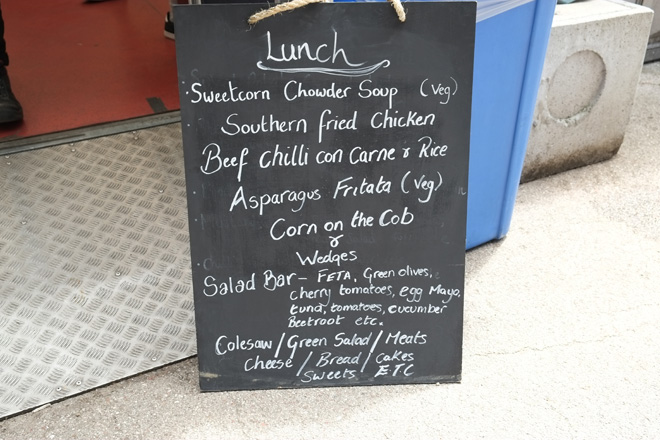 Lunch
Sweetcorn Chowder Soup (Veg)
Southern fried Chicken
Beef chilli con Carne & Rice
Asparagus Fritata (Veg)
Corn on the Cob
&
Wedges
Salad Bar - FETA, Green olives,
cherry tomatoes, egg Mayo,
tuna, tomatoes, cucumber
Beetroot etc.
Colesaw / Green Salad / Meats
Cheese / Bread / Cakes
Sweets ETC